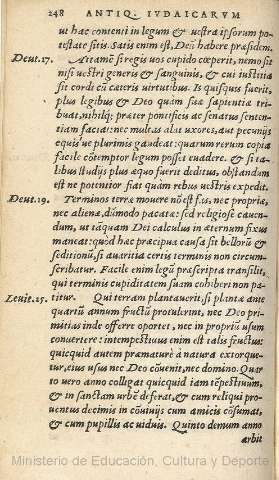 248 ANTIQ. IVDAICARVM
ut hac contenti in legum & uestra ipsorum po-
testate sitis. Satis enim est, Deũ habere præsidem.
Deut.17. At tamẽ si regis uos cupido cœperit, nemo sit
nisi uestri generis & sanguinis, & cui iustitia
sit cordi cũ cæteris uirtutibus. Is quisquis fuerit,
plus legibus & Deo quàm suæ sapientiæ tri-
buat, nihilq; præter pontificis ac senatus senten-
tiam faciat: nec multas alat uxores, aut pecunijs
equis'ue plurimis gaudeat: quarum rerum copia
facile cõtemptor legum posset euadere. & si ta-
libus studijs plus æquo fuerit deditus, obstandum
est ne potentior fiat quàm rebus uestris expedit.
Deut.19. Terminos terræ mouere nõ est fas, nec propriæ,
nec alienæ, dũmodo pacata: sed religiose cauen-
dum, ut tãquam Dei calculus in æternum fixus
maneat: quod hæc præcipua causa sit bellorũ &
seditionũ, si auaritia certis terminis non circum-
scribatur. Facile enim legũ præscripta transilit,
qui termini cupiditatem suam cohiberi non pa-
Leuit.25. titur. Qui terram plantauerit, si plantæ ante
quartũ annum fructũ protulerint, nec Deo pri-
mitias inde offerre oportet, nec in proprios usum
conuertere: intempestiuus enim est talis fructus:
quicquid autem præmaturè à natura extorque-
tur, eius usus nec Deo cõuenit, nec domino. Quar
to uero anno colligat quicquid iam tẽpestiuum,
& in sanctam urbẽ deferat, & cum reliqui pro-
uentus decimis in cõuiuijs cum amicis cõsumat,
& cum pupillis ac uiduis. Quinto demum anno
arbit
Ministerio de Educación, Cultura y Deporte